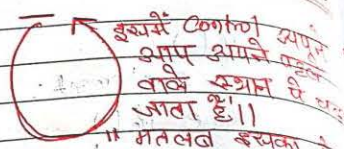 इसमें Control
आप अपने पहले
वाले स्थान पे
जाता है।।
" मतलब इसका